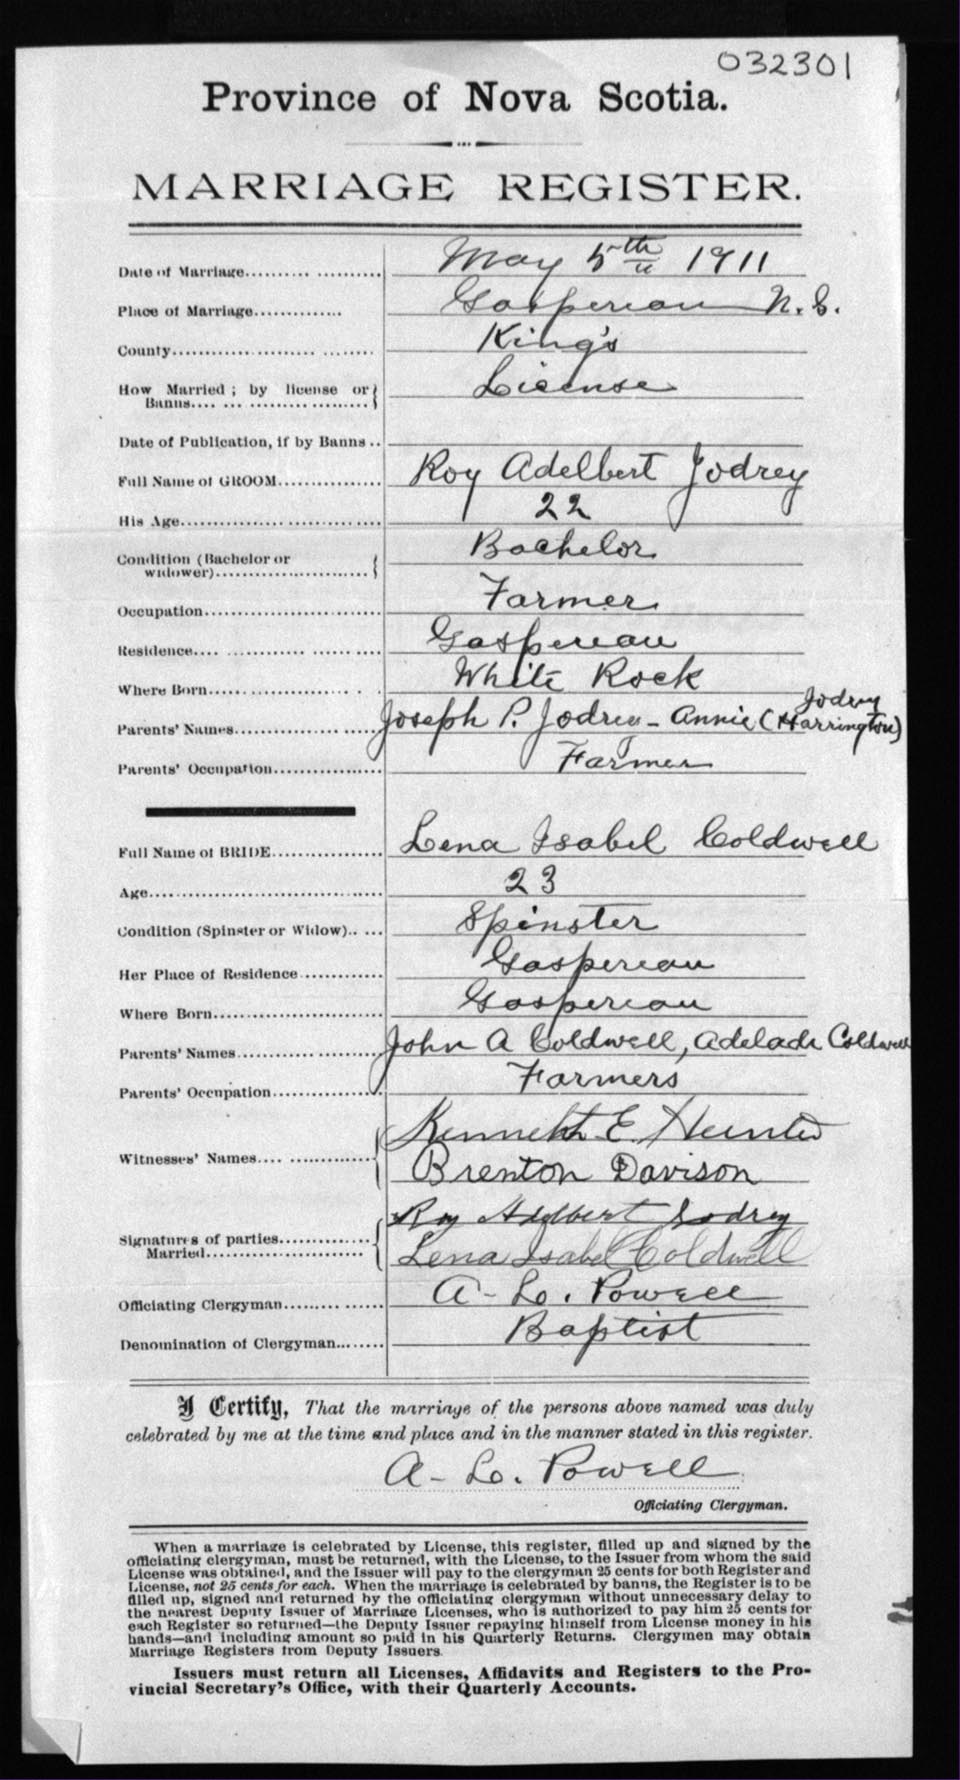 032301
Province of Nova Scotia.
MARRIAGE REGISTER.
Date of Marriage.......... May 5th 1911
Place of Marriage.............. Gaspereau N.S.
County.......... King's
How Married; by license or
Banns.......... License
Date of Publication, if by Banns ..
Full Name of GROOM.......... Roy Adelbert Jodrey
His Age.......... 22
Condition (Bachelor or
widower).......... Bachelor
Occupation.......... Farmer
Residence.......... Gaspereau
Where Born.......... White Rock
Parents' Names.......... Joseph P. Jodrey - Annie (Harrington) Jodrey
Parents' Occupation.......... Farmer
Full Name of BRIDE.......... Lena Isabel Coldwell
Age.......... 23
Condition (Spinster or Widow)..... Spinster
Her Place of Residence.......... Gaspereau
Where Born.......... Gaspereau
Parents' Names.......... John A Coldwell, Adelade Coldwell
Parents' Occupation.......... Farmers
Witnesses' Names.......... Kenneth E. Hunter
Brenton Davison
Signatures of parties
Married.......... Roy Adelbert Jodrey
Lena Isabel Coldwell
Officiating Clergyman.......... A- L. Powell
Denomination of Clergyman.......... Baptist
I Certify, That the marriage of the persons above named was duly
celebrated by me at the time and place and in the manner stated in this register.
A- L. Powell
Officiating Clergyman.
When a marriage is celebrated by License, this register, filled up and signed by the
officiating clergyman, must be returned, with the License, to the Issuer from whom the said
License was obtained, and the Issuer will pay to the clergyman 25 cents for both Register and
License, not 25 cents for each. When the marriage is celebrated by banns, the Register is to be
filled up, signed and returned by the officiating clergyman without unnecessary delay to
the nearest Deputy Issuer of Marriage Licenses, who is authorized to pay him 25 cents for
each Register so returned—the Deputy Issuer repaying himself from License money in his
hands—and including amount so paid in his Quarterly Returns. Clergymen may obtain
Marriage Registers from Deputy Issuers.
Issuers must return all Licenses, Affidavits and Registers to the Pro-
vincial Secretary's Office, with their Quarterly Accounts.